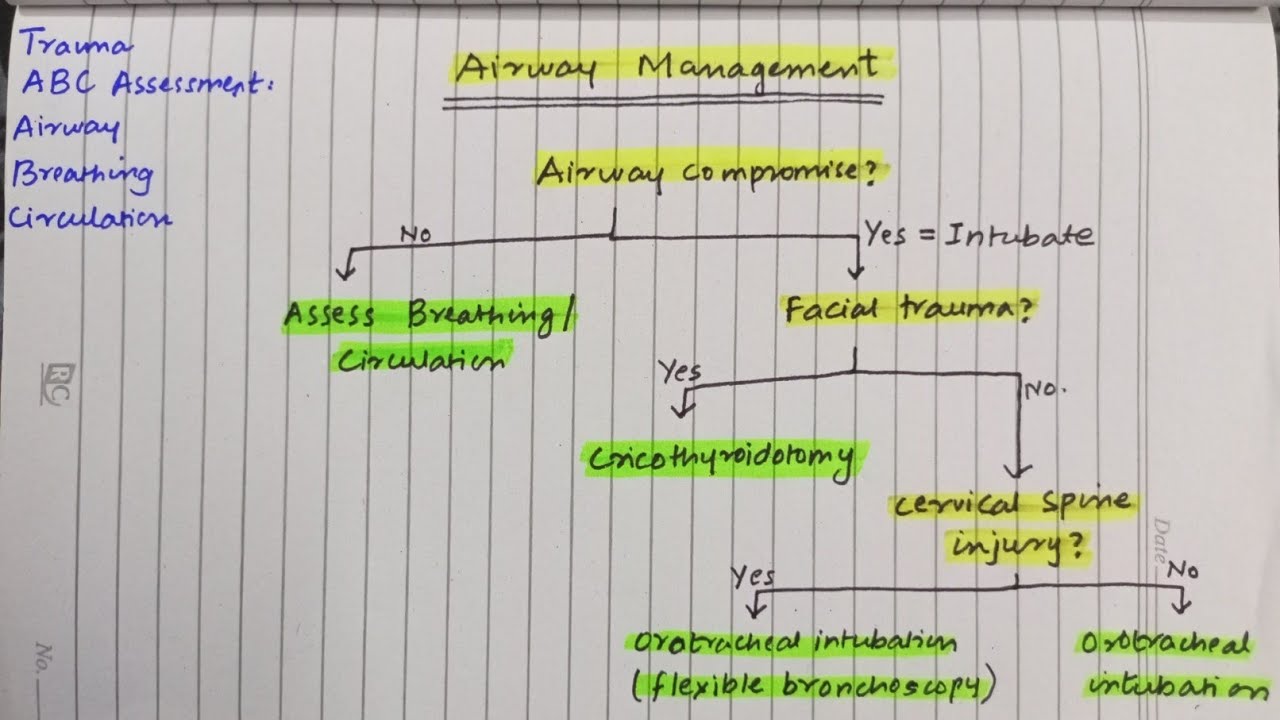 Trauma
ABC Assessment:
Airway
Breathing
Circulation
Airway Management
Airway compromise?
No
Yes = Intubate
Assess Breathing/
Circulation
Facial trauma?
Yes
No.
Cricothyroidotomy
Cervical spine
injury?
Yes
No
Orotracheal intubation
(flexible bronchoscopy)
Orotracheal
intubation
RC
No.
Date